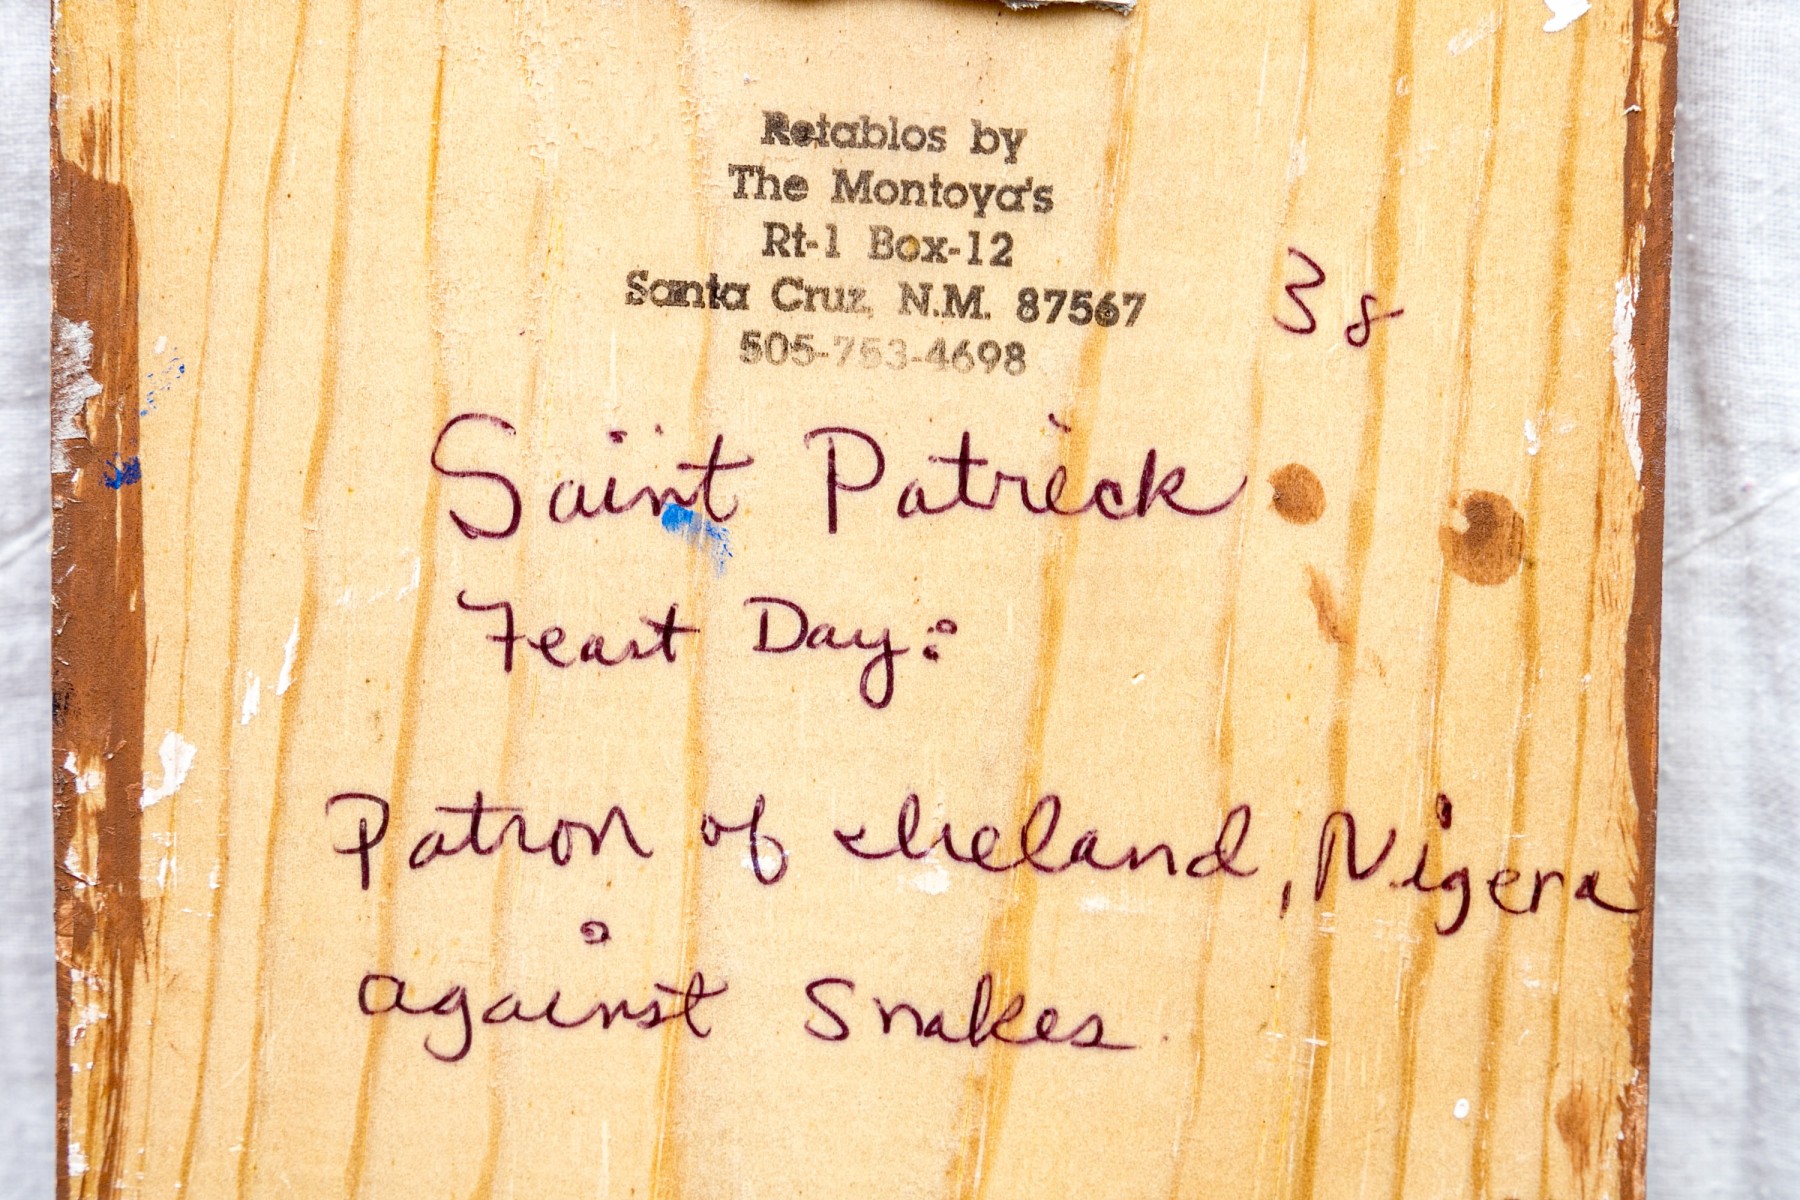 Retablos by
The Montoya's
Rt-1 Box-12
Santa Cruz, N.M. 87567
505-753-4698
38
Saint Patrick
Feast Day:
Patron of Ireland, Nigera
against Snakes.